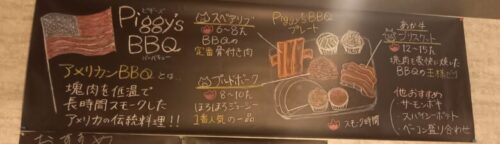 ピギーズ
Piggy's
BBQ
バーベキュー
アメリカンBBQとは、
塊肉を低温で
長時間スモークした
アメリカの伝統料理!!
スペアリブ
6~8h
BBQの
定番骨付き肉
プルドポーク
8~10h
ほろほろジューシー
1番人気の一品
Piggy's BBQ
プレート
スモーク時間
あか牛
ブリスケット
12~15h
BBQの王様だり
他おすすめ
サーモンボキ
スパイシーポテト
ベーコン盛り合わせ
おすすめ